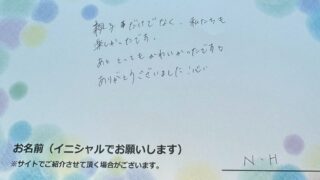 親子丼だけでなく、私たちも
楽しかったです。
とってもかわいかったです♪
ありがとうございました
お名前（イニシャルでお願いします）
※サイトでご紹介させて頂く場合がございます。
N・H